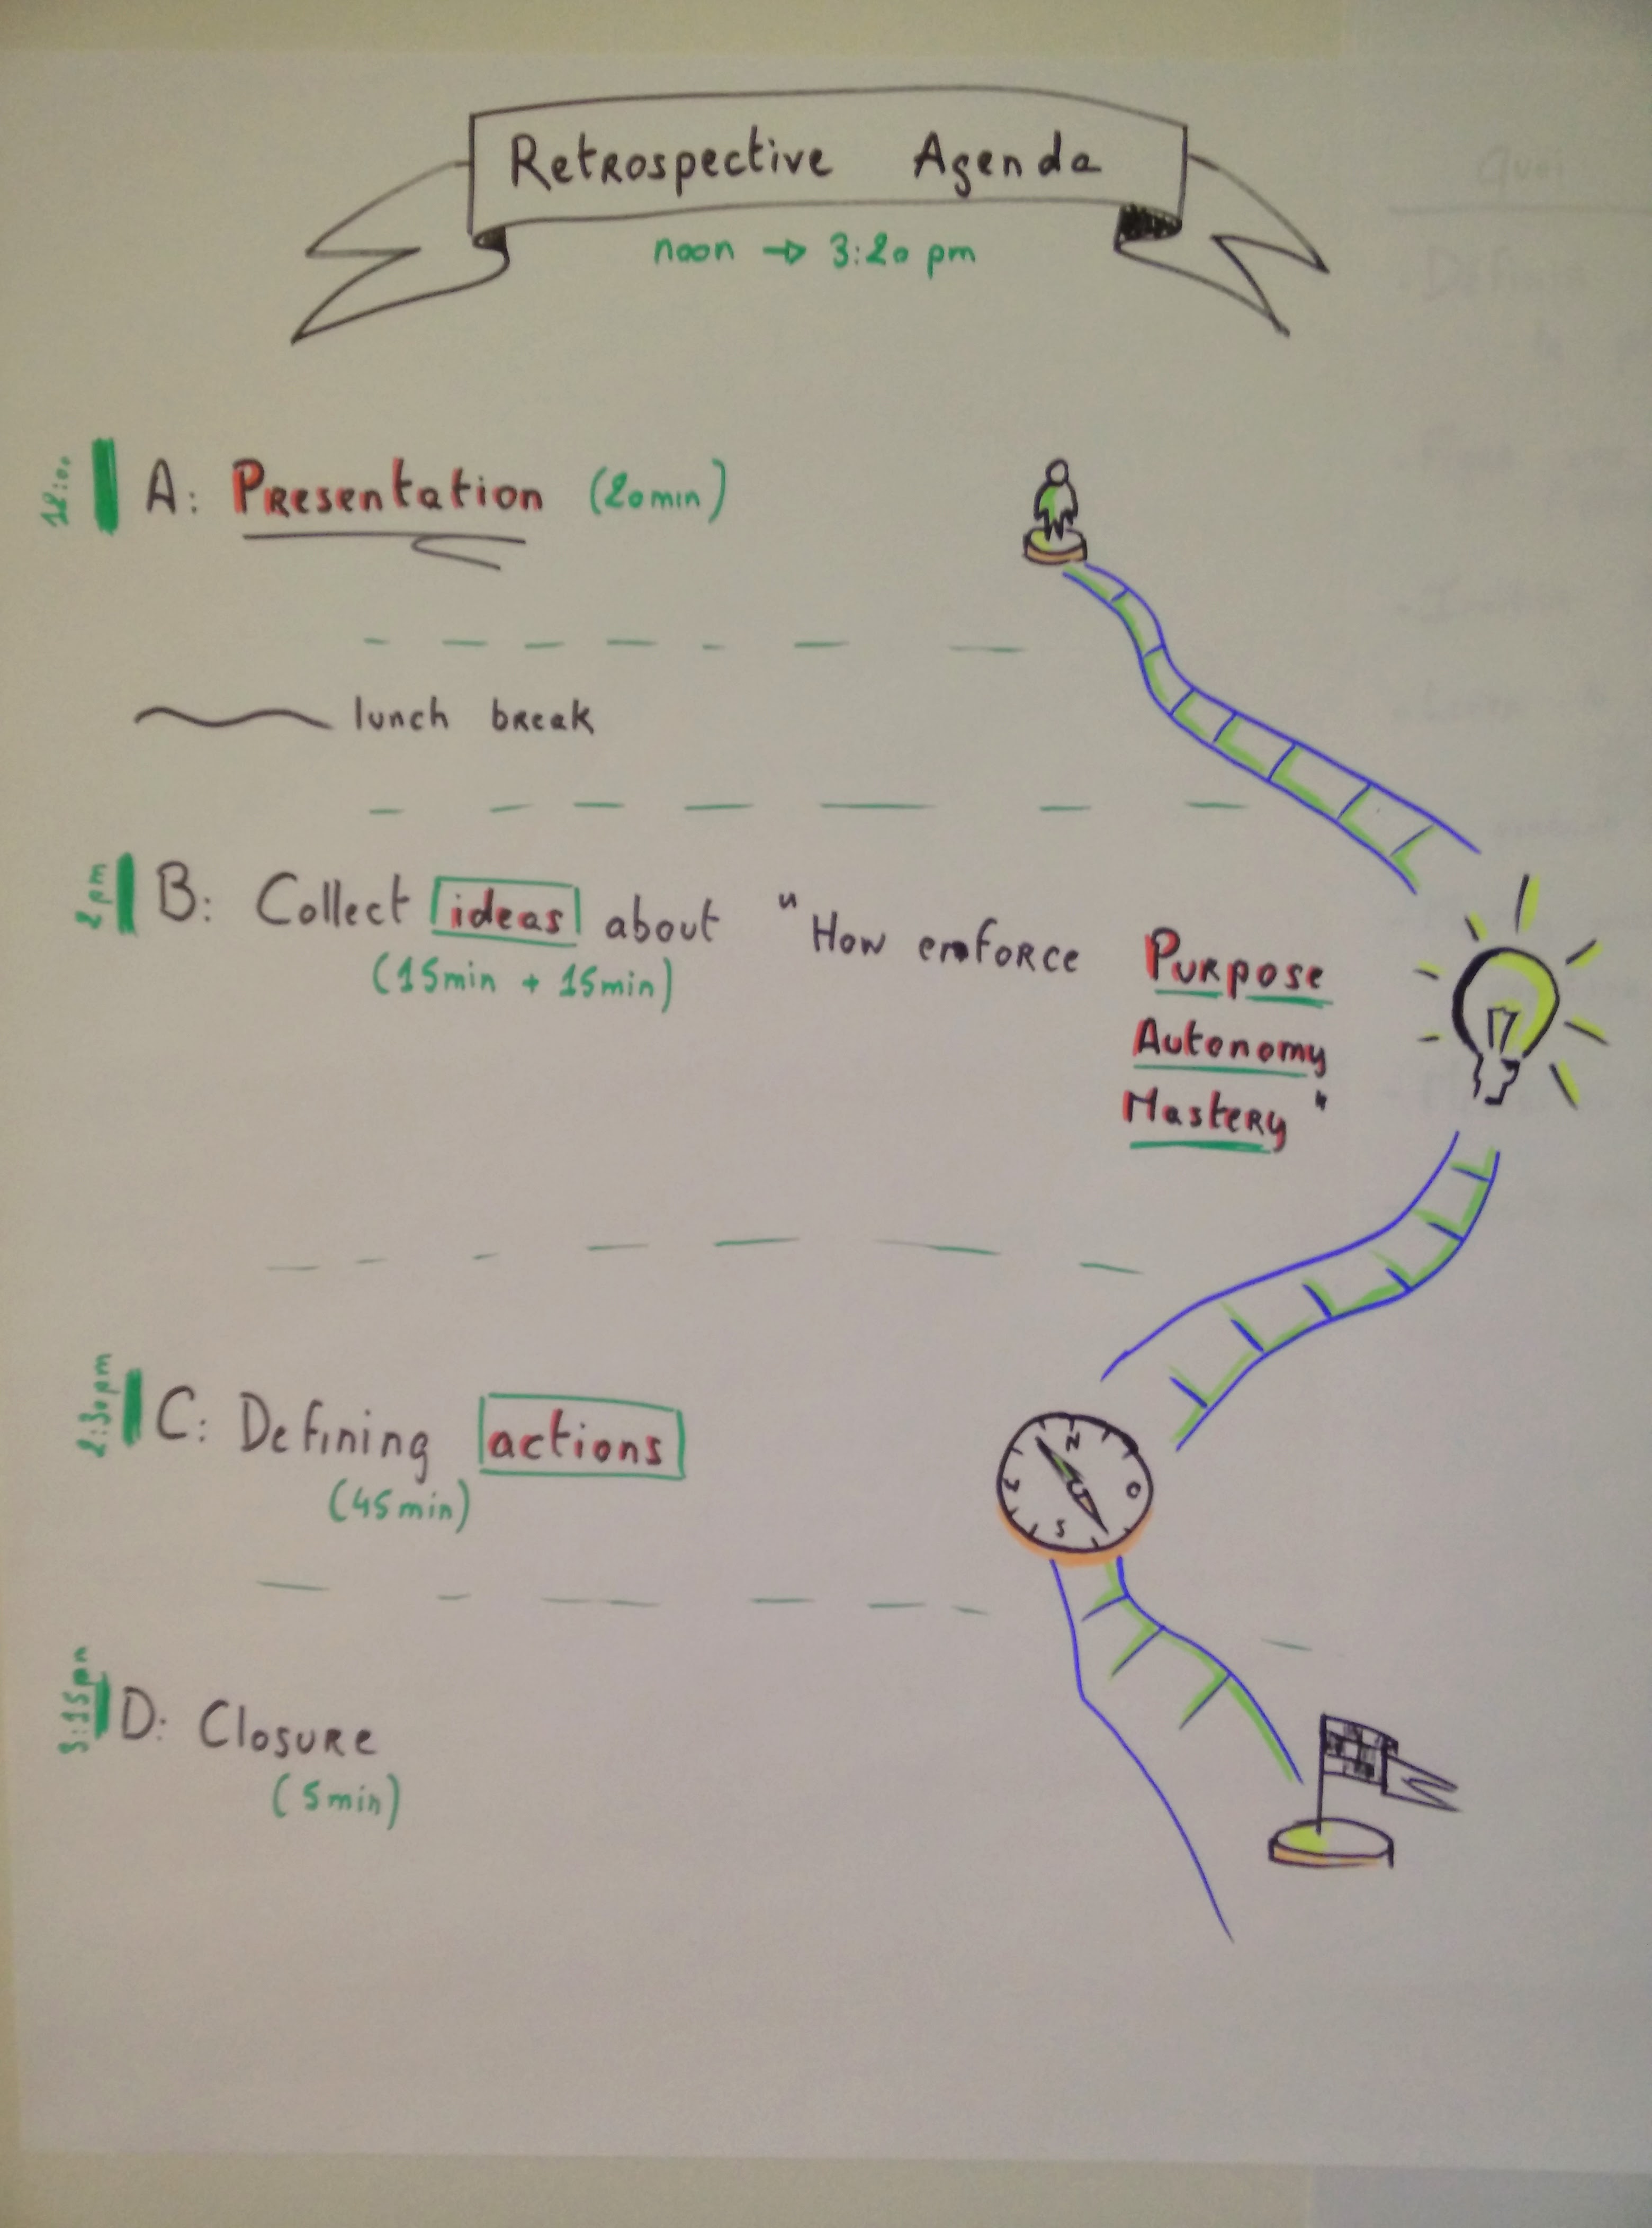 Retrospective Agenda
noon → 3:20 pm
12:00
A: Presentation (20min)
lunch break
2 pm
B: Collect ideas about "How enforce Purpose
(15min + 15min)
Autonomy
Mastery"
2:30pm
C: Defining actions
(45min)
N
O
S
3:15pm
D: Closure
(5min)
Quoi